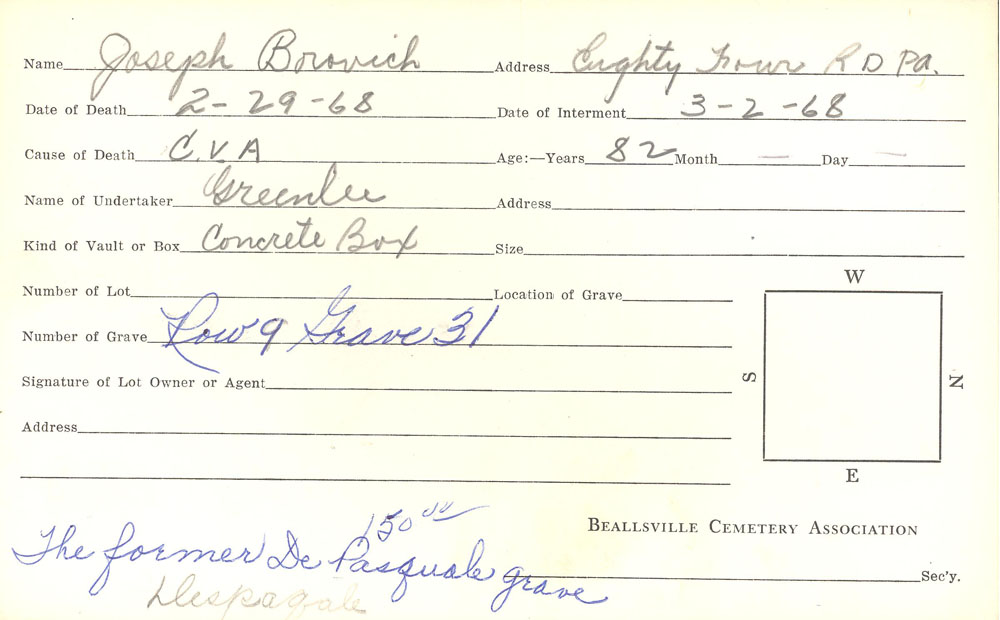 Name Joseph Borovich Address Eighty Four R D Pa.
Date of Death 2-29-68 Date of Interment 3-2-68
Cause of Death C.V.A Age:—Years 82 Month — Day —
Name of Undertaker Greenlee Address
Kind of Vault or Box Concrete Box Size
Number of Lot Location of Grave
Number of Grave Row 9 Grave 31
Signature of Lot Owner or Agent
Address
W
S
N
E
150 00
BEALLSVILLE CEMETERY ASSOCIATION
The former De Pasquale grave
Sec'y.
Despagale